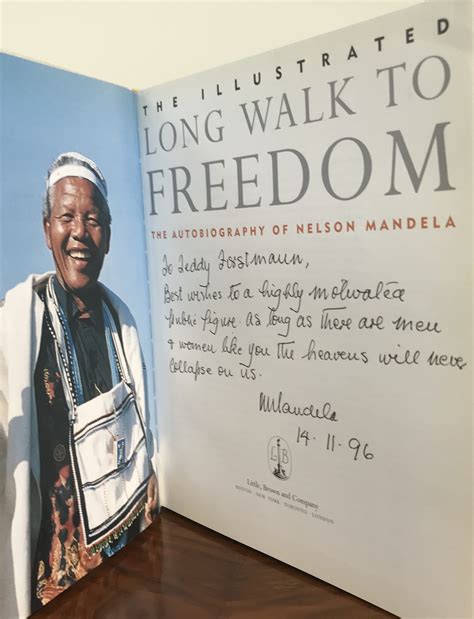 THE ILLUSTRATED
LONG WALK TO
FREEDOM
THE AUTOBIOGRAPHY OF NELSON MANDELA
To Teddy Forstmann,
Best wishes to a highly motivated
public figure. As long as there are men
& women like you the heavens will never
collapse on us.
NMandela
14·11·96
L B
Little, Brown and Company
BOSTON NEW YORK TORONTO LONDON